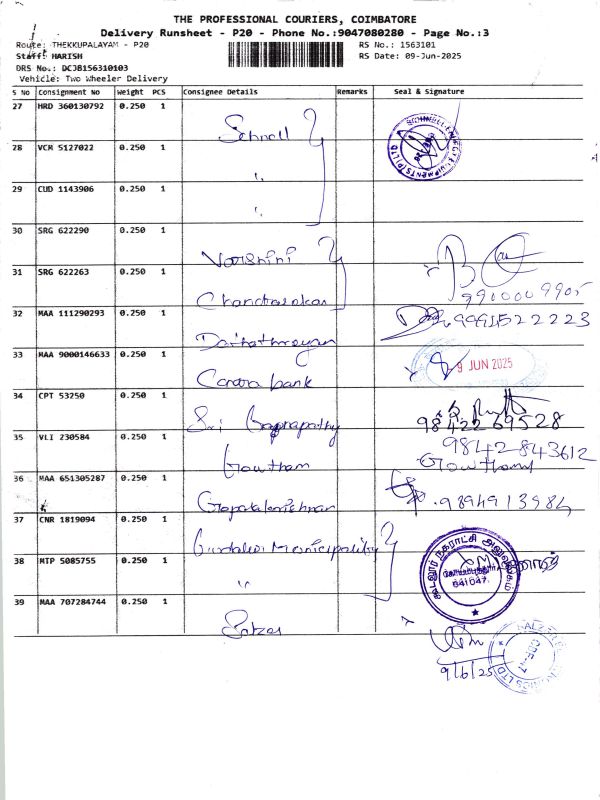 THE PROFESSIONAL COURIERS, COIMBATORE
Delivery Runsheet - P20 - Phone No.:9047080280 - Page No.:3
Route: THEKKUPALAYAM - P20
RS No.: 1563101
Staff: HARISH
RS Date: 09-Jun-2025
DRS No.: DCJB156310103
Vehicle: Two Wheeler Delivery
S No Consignment No Weight PCS Consignee Details Remarks Seal & Signature
27 HRD 360130792 0.250 1
28 VCM 5127022 0.250 1
29 CUD 1143906 0.250 1
30 SRG 622290 0.250 1
31 SRG 622263 0.250 1
9910009905
32 MAA 111290293 0.250 1
9991522223
33 MAA 9000146633 0.250 1 9 JUN 2025
Canara bank
34 CPT 53250 0.250 1
Sri
9842269528
35 VLI 230584 0.250 1
9842843612
Gowtham Gowtham
36 MAA 651305287 0.250 1
9894913984
Gopalakrishnan
37 CNR 1819094 0.250 1
Municipality
38 MTP 5085755 0.250 1
கூடலூர் நகராட்சி அலுவலகம்
641047
39 MAA 707284744 0.250 1
9/6/25